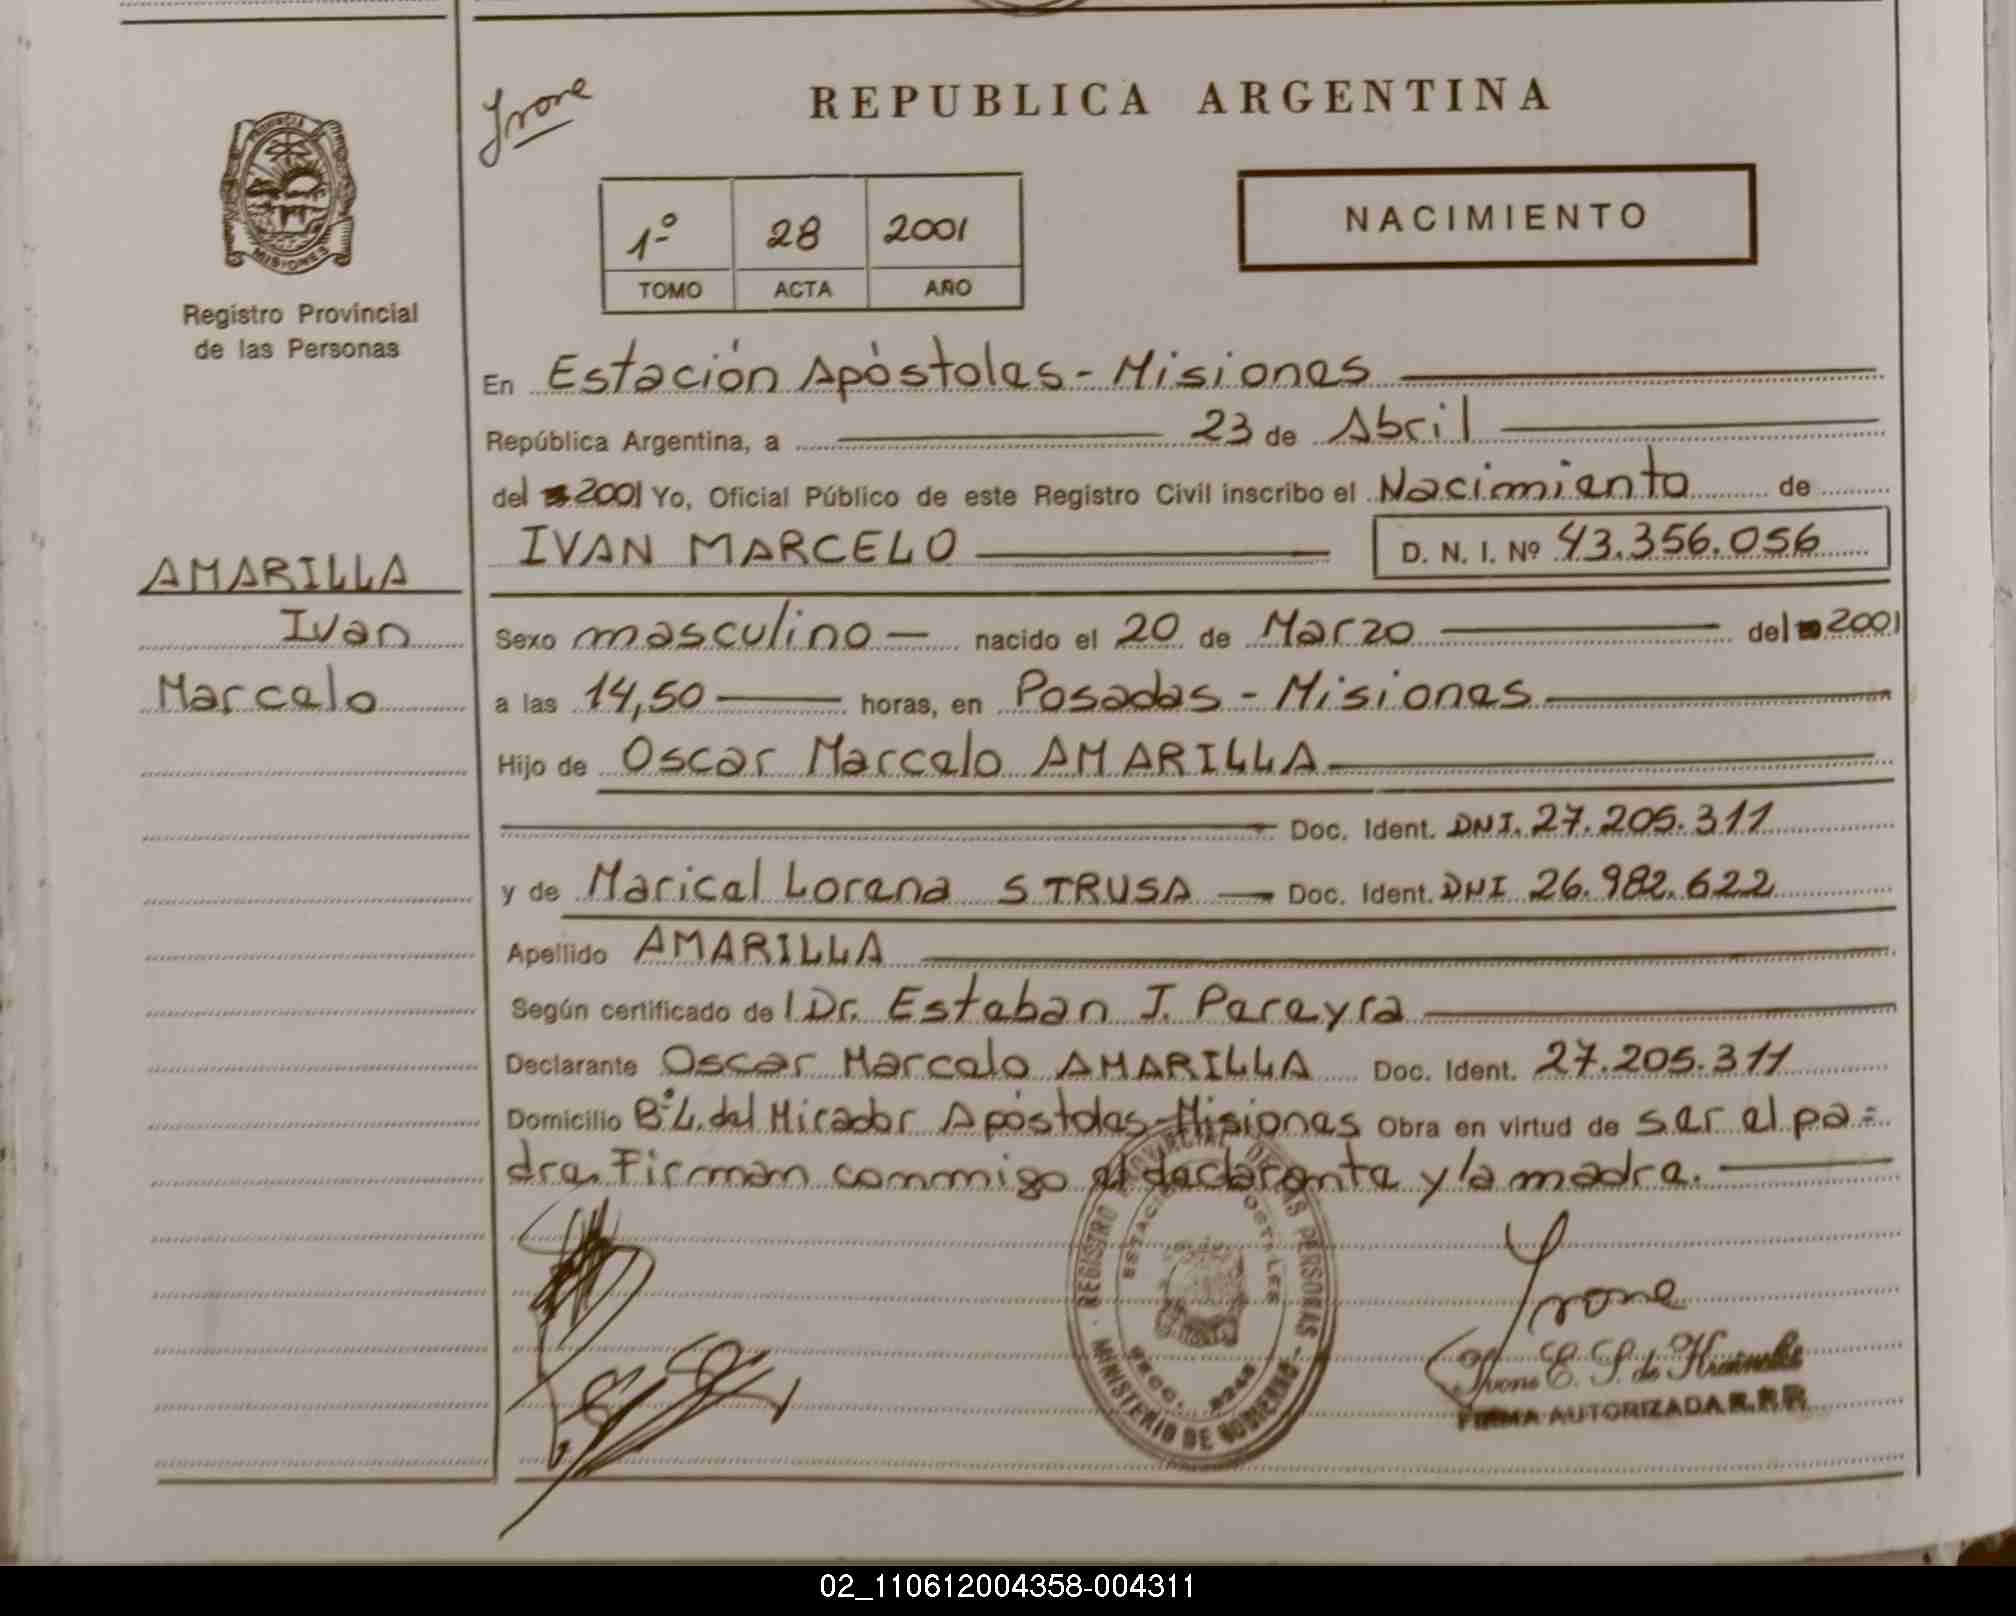 Irone
REPUBLICA ARGENTINA
PROVINCIA
MISIONES
Registro Provincial
de las Personas
1º 28 2001
TOMO ACTA AÑO
NACIMIENTO
En Estación Apóstoles - Misiones
República Argentina, a 23 de Abril
del 2001 Yo, Oficial Público de este Registro Civil inscribo el Nacimiento de
IVAN MARCELO D. N. I. Nº 43.356.056
AMARILLA
Ivan
Marcelo
Sexo masculino — nacido el 20 de Marzo del 2001
a las 14,50 horas, en Posadas - Misiones
Hijo de Oscar Marcelo AMARILLA
Doc. Ident. DNI. 27.205.311
y de Maricel Lorena STRUSA — Doc. Ident. DNI 26.982.622
Apellido AMARILLA
Según certificado de l Dr. Esteban J. Pereyra
Declarante Oscar Marcelo AMARILLA Doc. Ident. 27.205.311
Domicilio Bº L. del Mirador Apóstoles - Misiones Obra en virtud de ser el pa=
dre. Firman conmmigo el declarante y la madre.
REGISTRO PROVINCIAL DE LAS PERSONAS
MINISTERIO DE GOBIERNO
Irone
FIRMA AUTORIZADA R.P.P.
02_110612004358-004311